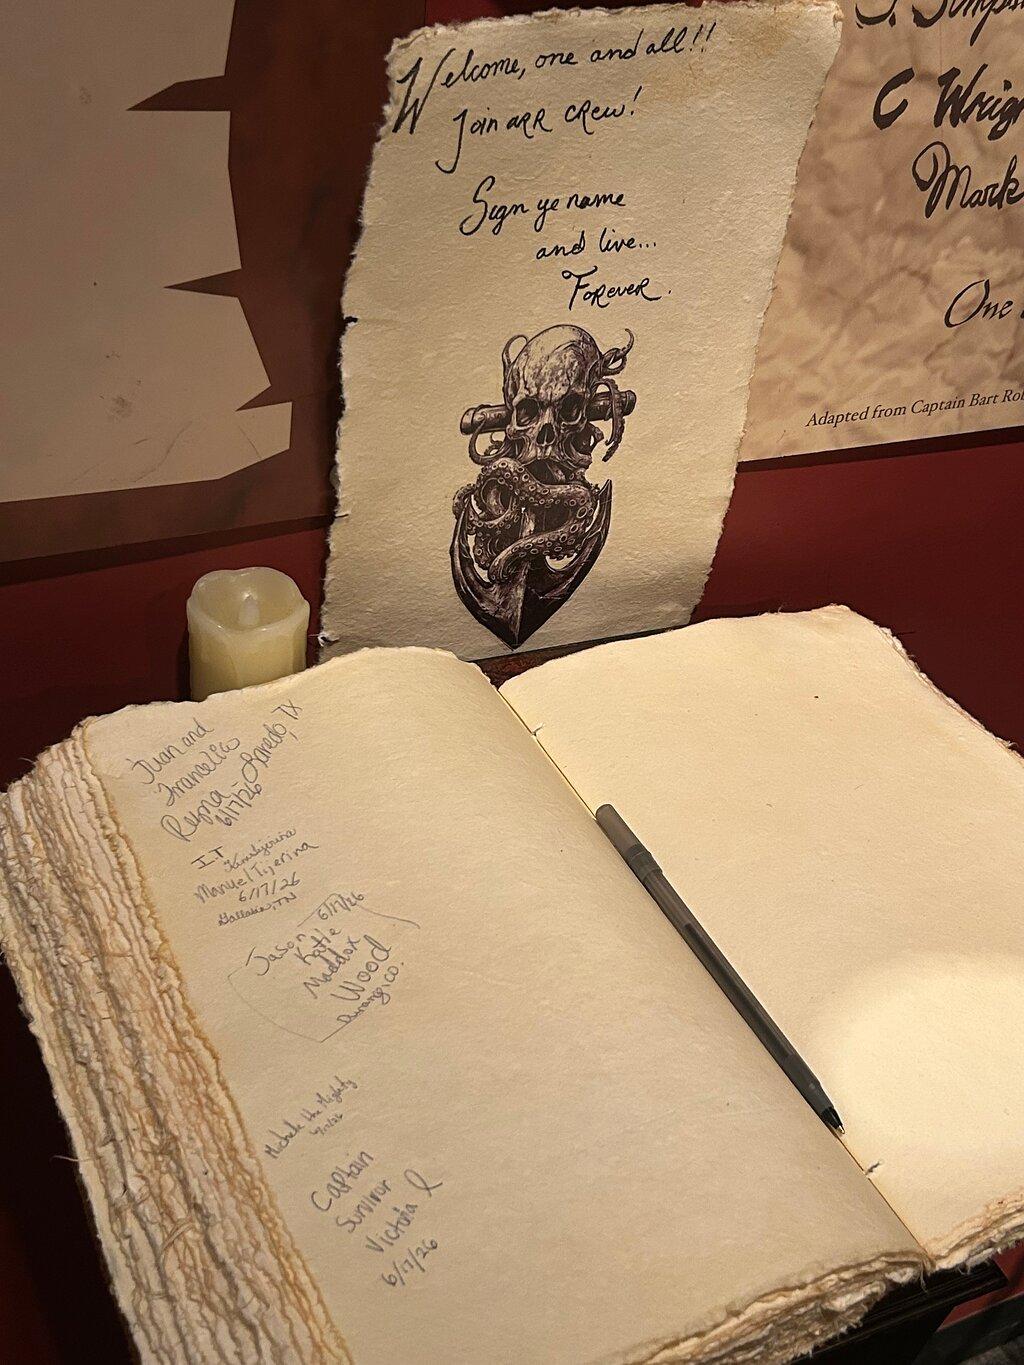 Welcome, one and all!!
Join arr crew!
Sign ye name
and live...
Forever.
C
Mark
One
Adapted from Captain Bart
Juan and
Reyna - Laredo, TX
6/17/26
I.T
Manuel Tijerina
6/17/26
Gallatin, TN
Jason 6/17/26
Katie
Maddox
Wood
Durango, CO.
Michele the Mighty
Captain
Survivor
Victoria
6/17/26